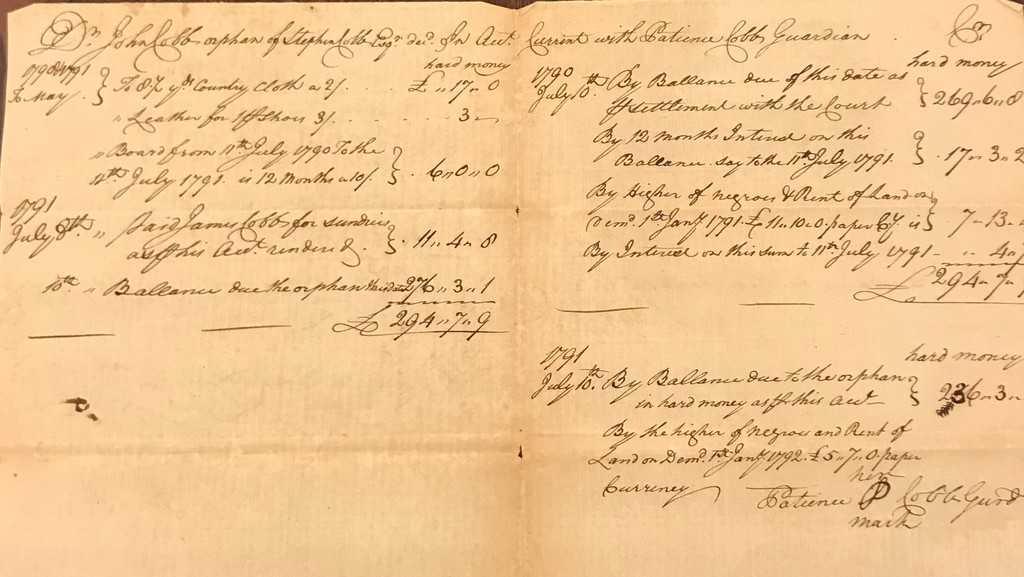 Dr. John Cobb orphan of Stephen Cobb Esqr. decd. In Acct. Current with Patience Cobb Guardian Cr.
hard money
1790 & 1791
To May
To 8½ yds Country Cloth a 2/. £ " 17 " 0
" Leather for 1 pr Shoes 3/. 3 "
" Board from 11th July 1790 To the
11th July 1791 is 12 Months a 10/. 6 " 0 " 0
1791
July 8th " Paid James Cobb for sundries
as pr his Acct. rendered 11 " 4 " 8
10th " Ballance due the orphan 276 " 3 " 1
£ 294 " 7 " 9
hard money
1790
July 10th By Ballance due of this date as
pr settlement with the Court 269 " 6 " 8
By 12 months Interest on this
Ballance say to the 11th July 1791 17 " 3 " 2
By Higher of negroes & Rent of Land on
Demd. 1st Jany 1791 £ 11 " 10 " 0 paper Cy. is 7 " 13 "
By Interest on this sum to 11th July 1791 " 4 "
£ 294 " 7 "
1791
hard money
July 10th By Ballance due to the orphan
in hard money as pr this Acct 236 " 3 "
By the higher of negroes and Rent of
Land on Demd. 1st Jany 1792 £ 5 " 7 " 0 paper
Curriney
her
Patience P Cobb Gurd
mark